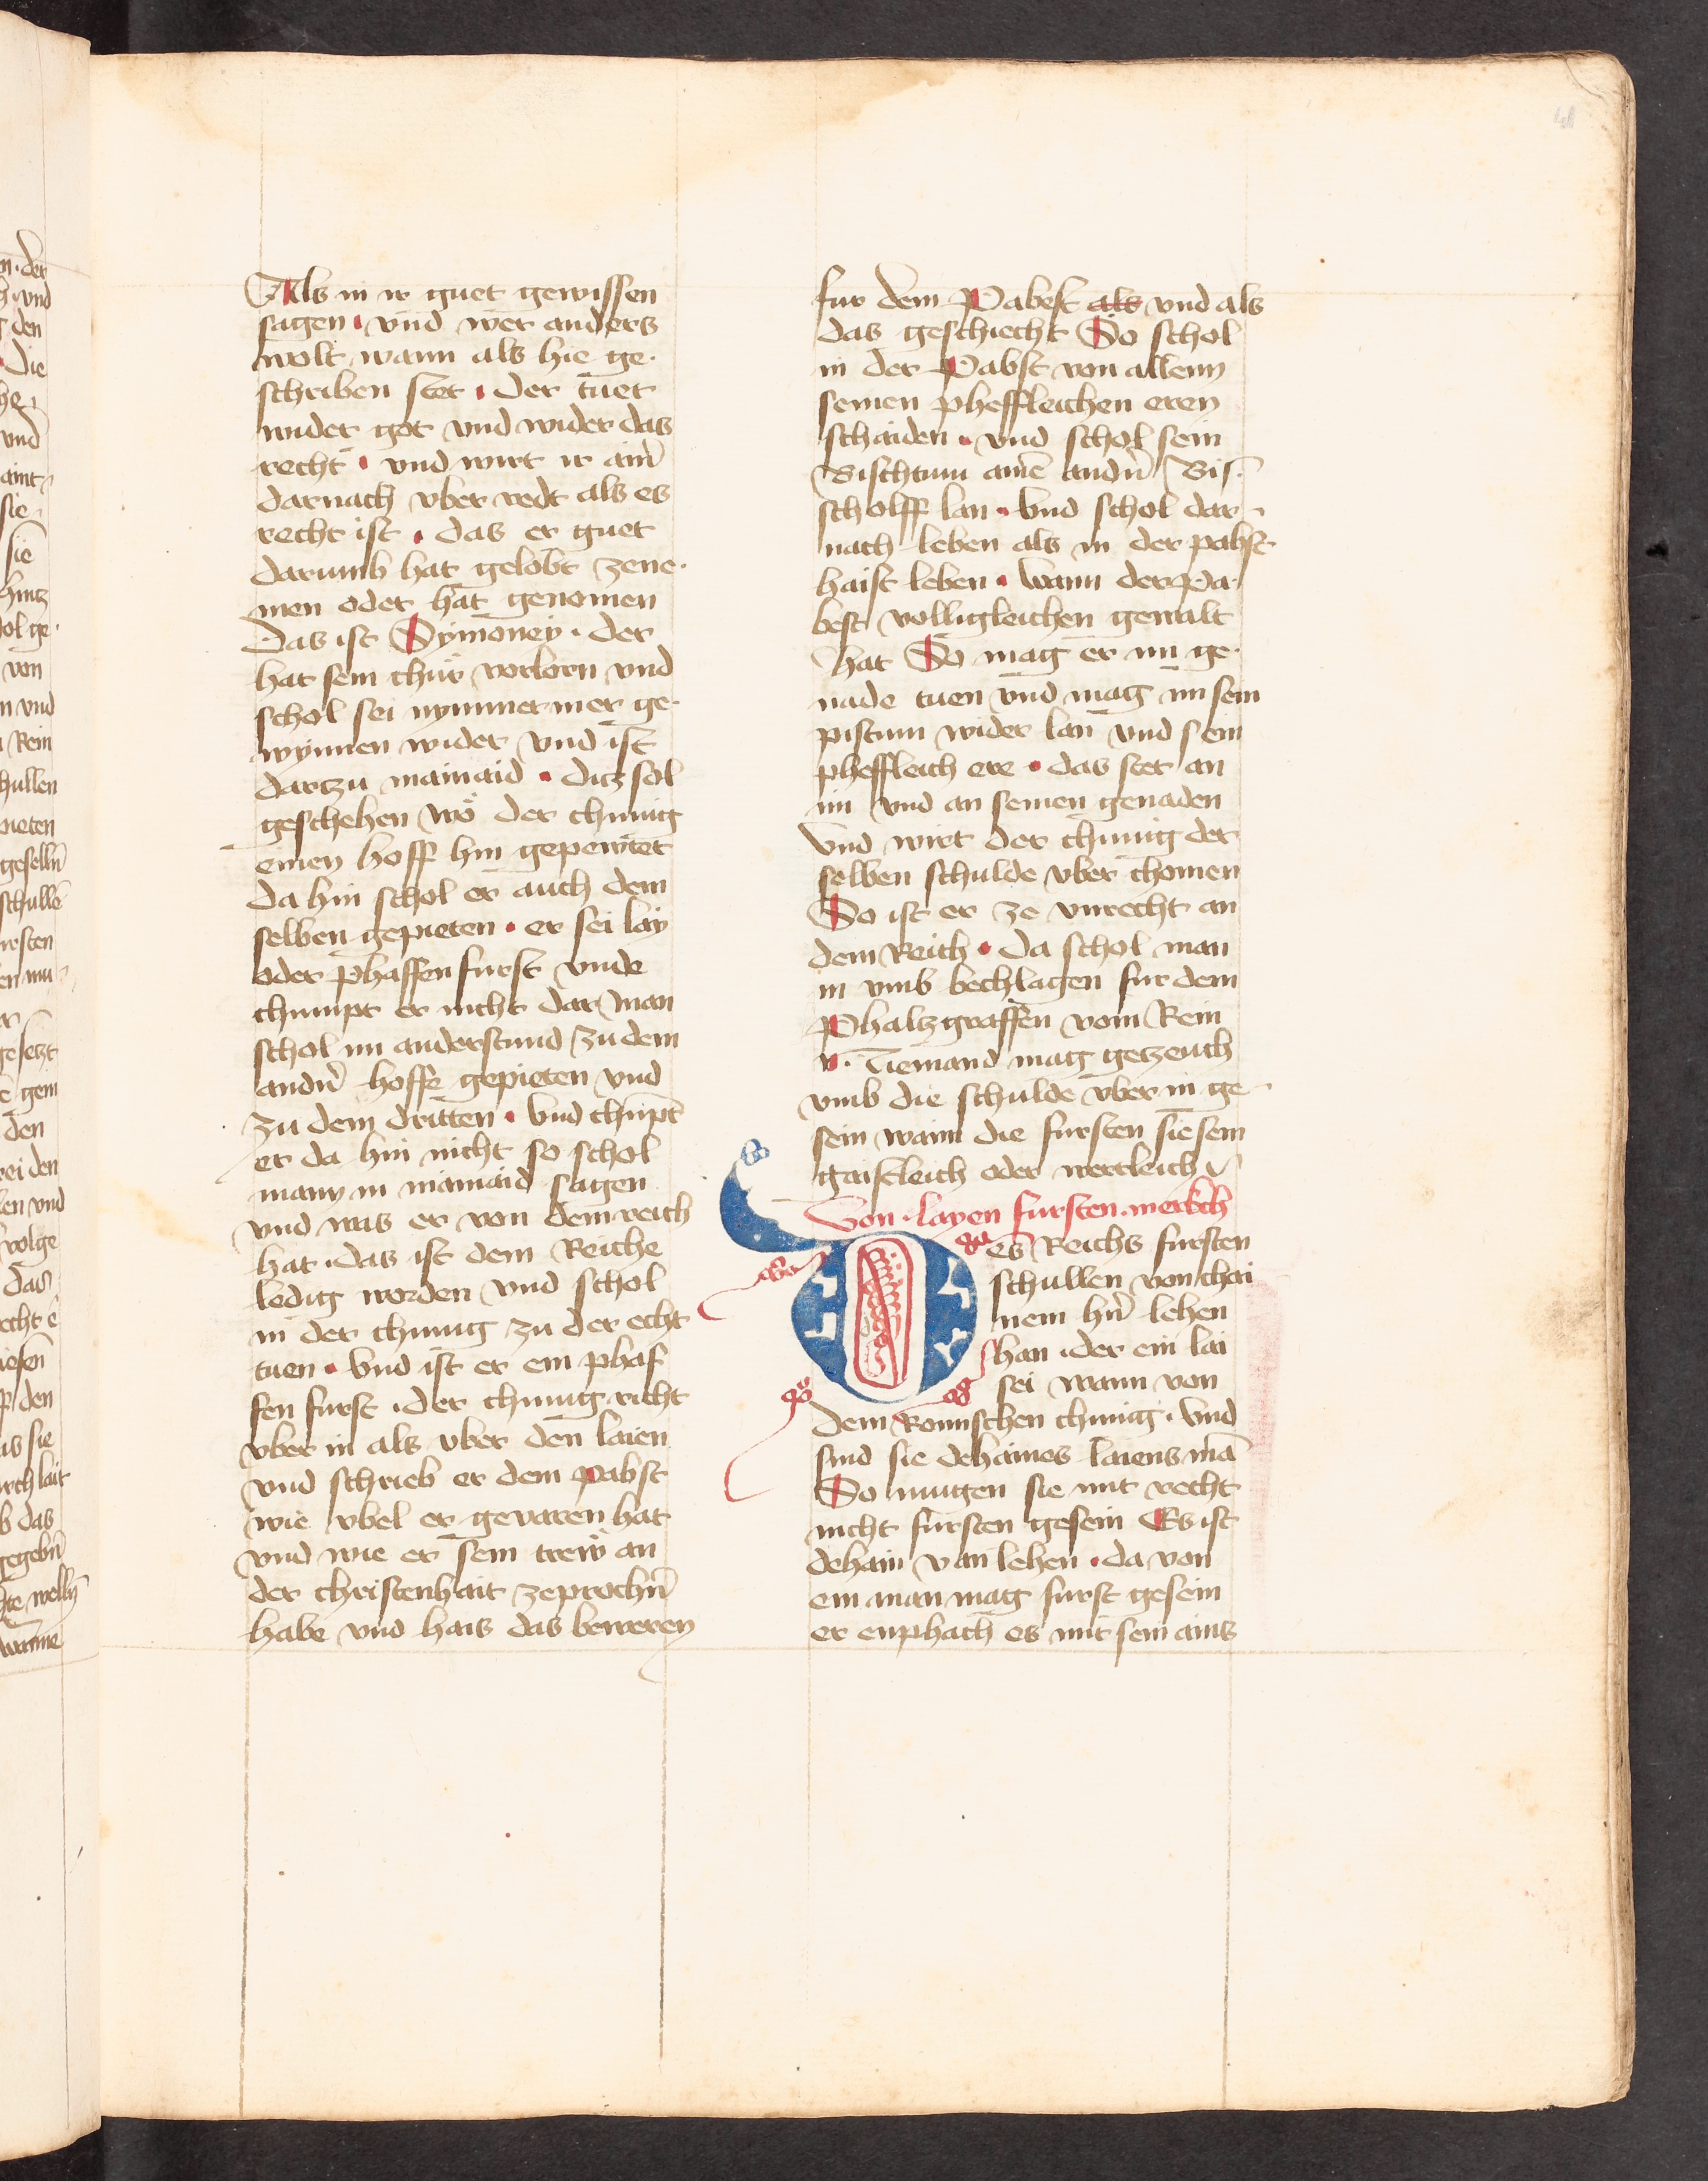 Als in ir guet gewissen
sagen · vnd wer anders
wolt wann als hie ge·
schriben stet · der tuet
wider got vnd wider das
recht · vnd wirt ir ainr̄
darnach vber redt als es
recht ist · das er guet
darumb hat gelobt zene·
men oder hat genomen
Das ist Symoney · der
hat sein chür verlorn vnd
schol sei nymmermer ge·
wynnen wider vnd ist
dartzu mainaid · ditz sol
geschehen wo der chunig
einen hoff hin gepewtet
da hin schol er auch dem
selben gepieten · er sei lay
oder phaffen furst vnde
chumpt er nicht dar man
schol im anderstund zu dem
andn̄ hoffe gepieten vnd
zu dem dritten · vnd chūpt
er da hin nicht so schol
mann in mainaid sagen
vnd was er von dem reich
hat · das ist dem Reiche
ledig worden vnd schol
in der chunig zu der echt
tuen · vnd ist er ein phaf
fen furst · der chunig richt
vber in als vber den laien
vnd schrieb er dem pabst
wie vbel er gevaren hat
vnd wie er sein trew an
der christenhait zeprochn̄
habe vnd hais das beweren
fur dem Pabest als vnd als
das geschiecht So schol
in der Pabst von allenn
seinen pheffleichen eren
schaiden · vnd schol sein
Bischtum ainē andn̄ Bis·
scholff lan · vnd schol dar·
nach leben als in der pabst
haist leben · wann der Pa·
best volligleichen gewalt
hat So mag er im ge·
nade tuen vnd mag im sein
pistum wider lan vnd sein
pheffleich ere · das stet an
im vnd an seinen genaden
vnd wirt der chunig der
selben schulde vber chomen
So ist er ze vnrecht an
dem Reich · da schol man
in vmb bechlagen fur dem
Phaltzgraffen vom Rein
Niemand mag getzeuch
vmb die schulde vber in ge·
sein wann die fursten sie sein
gaistleich oder wertleich
Von · layen fursten · merkch
Des Reichs fursten
schullen von chai
nem hn̄ lehen
han · der ein lai
sei wann von
dem Romischen chunig · vnd
sind sie dehaines laiens mā
So mugen sie mit recht
nicht fursten gesein Es ist
dehain van lehen · da von
ein man mag furst gesein
er enphach es mit sein ains